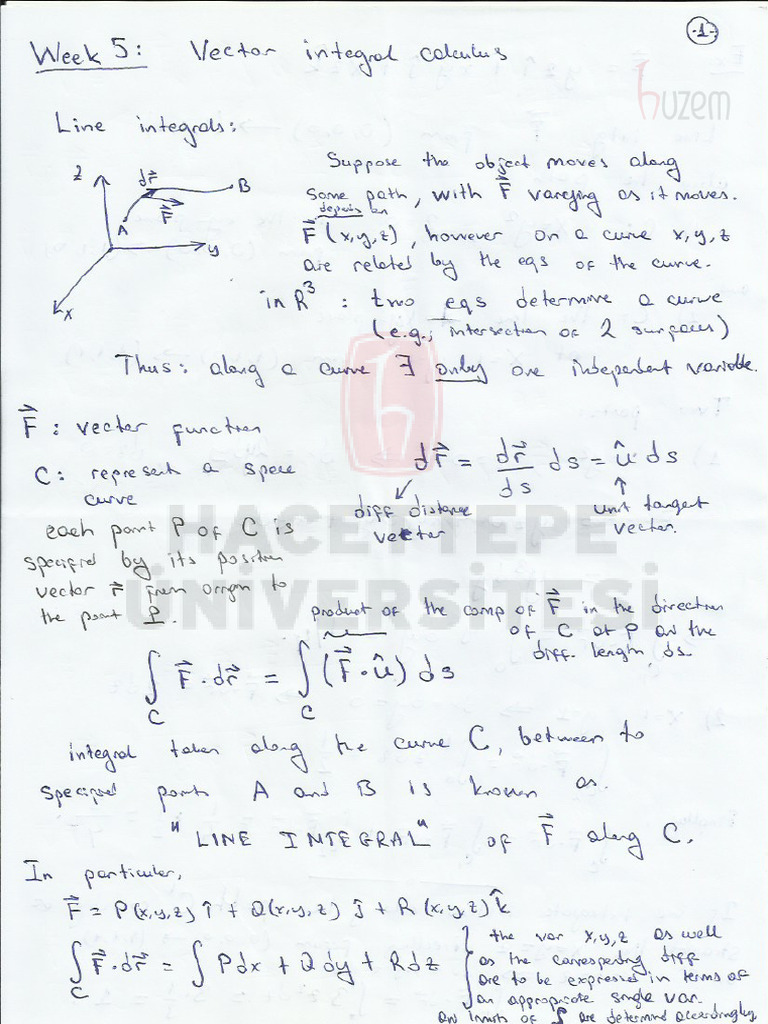 -1-
Week 5: Vector integral calculus
huzem
Line integrals:
z
dr⃗
B
F⃗
A
y
x
Suppose the object moves along
some path, with F⃗ varying as it moves.
depends on
F⃗ (x,y,z), however on a curve x,y,z
are related by the eqs of the curve.
in R³ : two eqs determine a curve
(e.g., intersection of 2 surfaces)
Thus: along a curve ∃ only one independent variable.
F⃗ : vector function
C: represent a space
curve
each point P of C is
specified by its position
vector r⃗ from origin to
the point P.
dr⃗ = dr⃗/ds ds = û ds
diff distance
vector
unit tangent
vector.
HACETTEPE
ÜNİVERSİTESİ
product of the comp of F⃗ in the direction
of C at P and the
diff. length ds.
∫_C F⃗·dr⃗ = ∫_C (F⃗·û) ds
integral taken along the curve C, between to
specified points A and B is known as.
"LINE INTEGRAL" of F⃗ along C.
In particular,
F⃗ = P(x,y,z) î + Q(x,y,z) ĵ + R(x,y,z) k̂
∫_C F⃗·dr⃗ = ∫ Pdx + Qdy + Rdz
the var x,y,z as well
as the corresponding diff
are to be expressed in terms of
an appropriate single var.
and limits of ∫ are determined accordingly